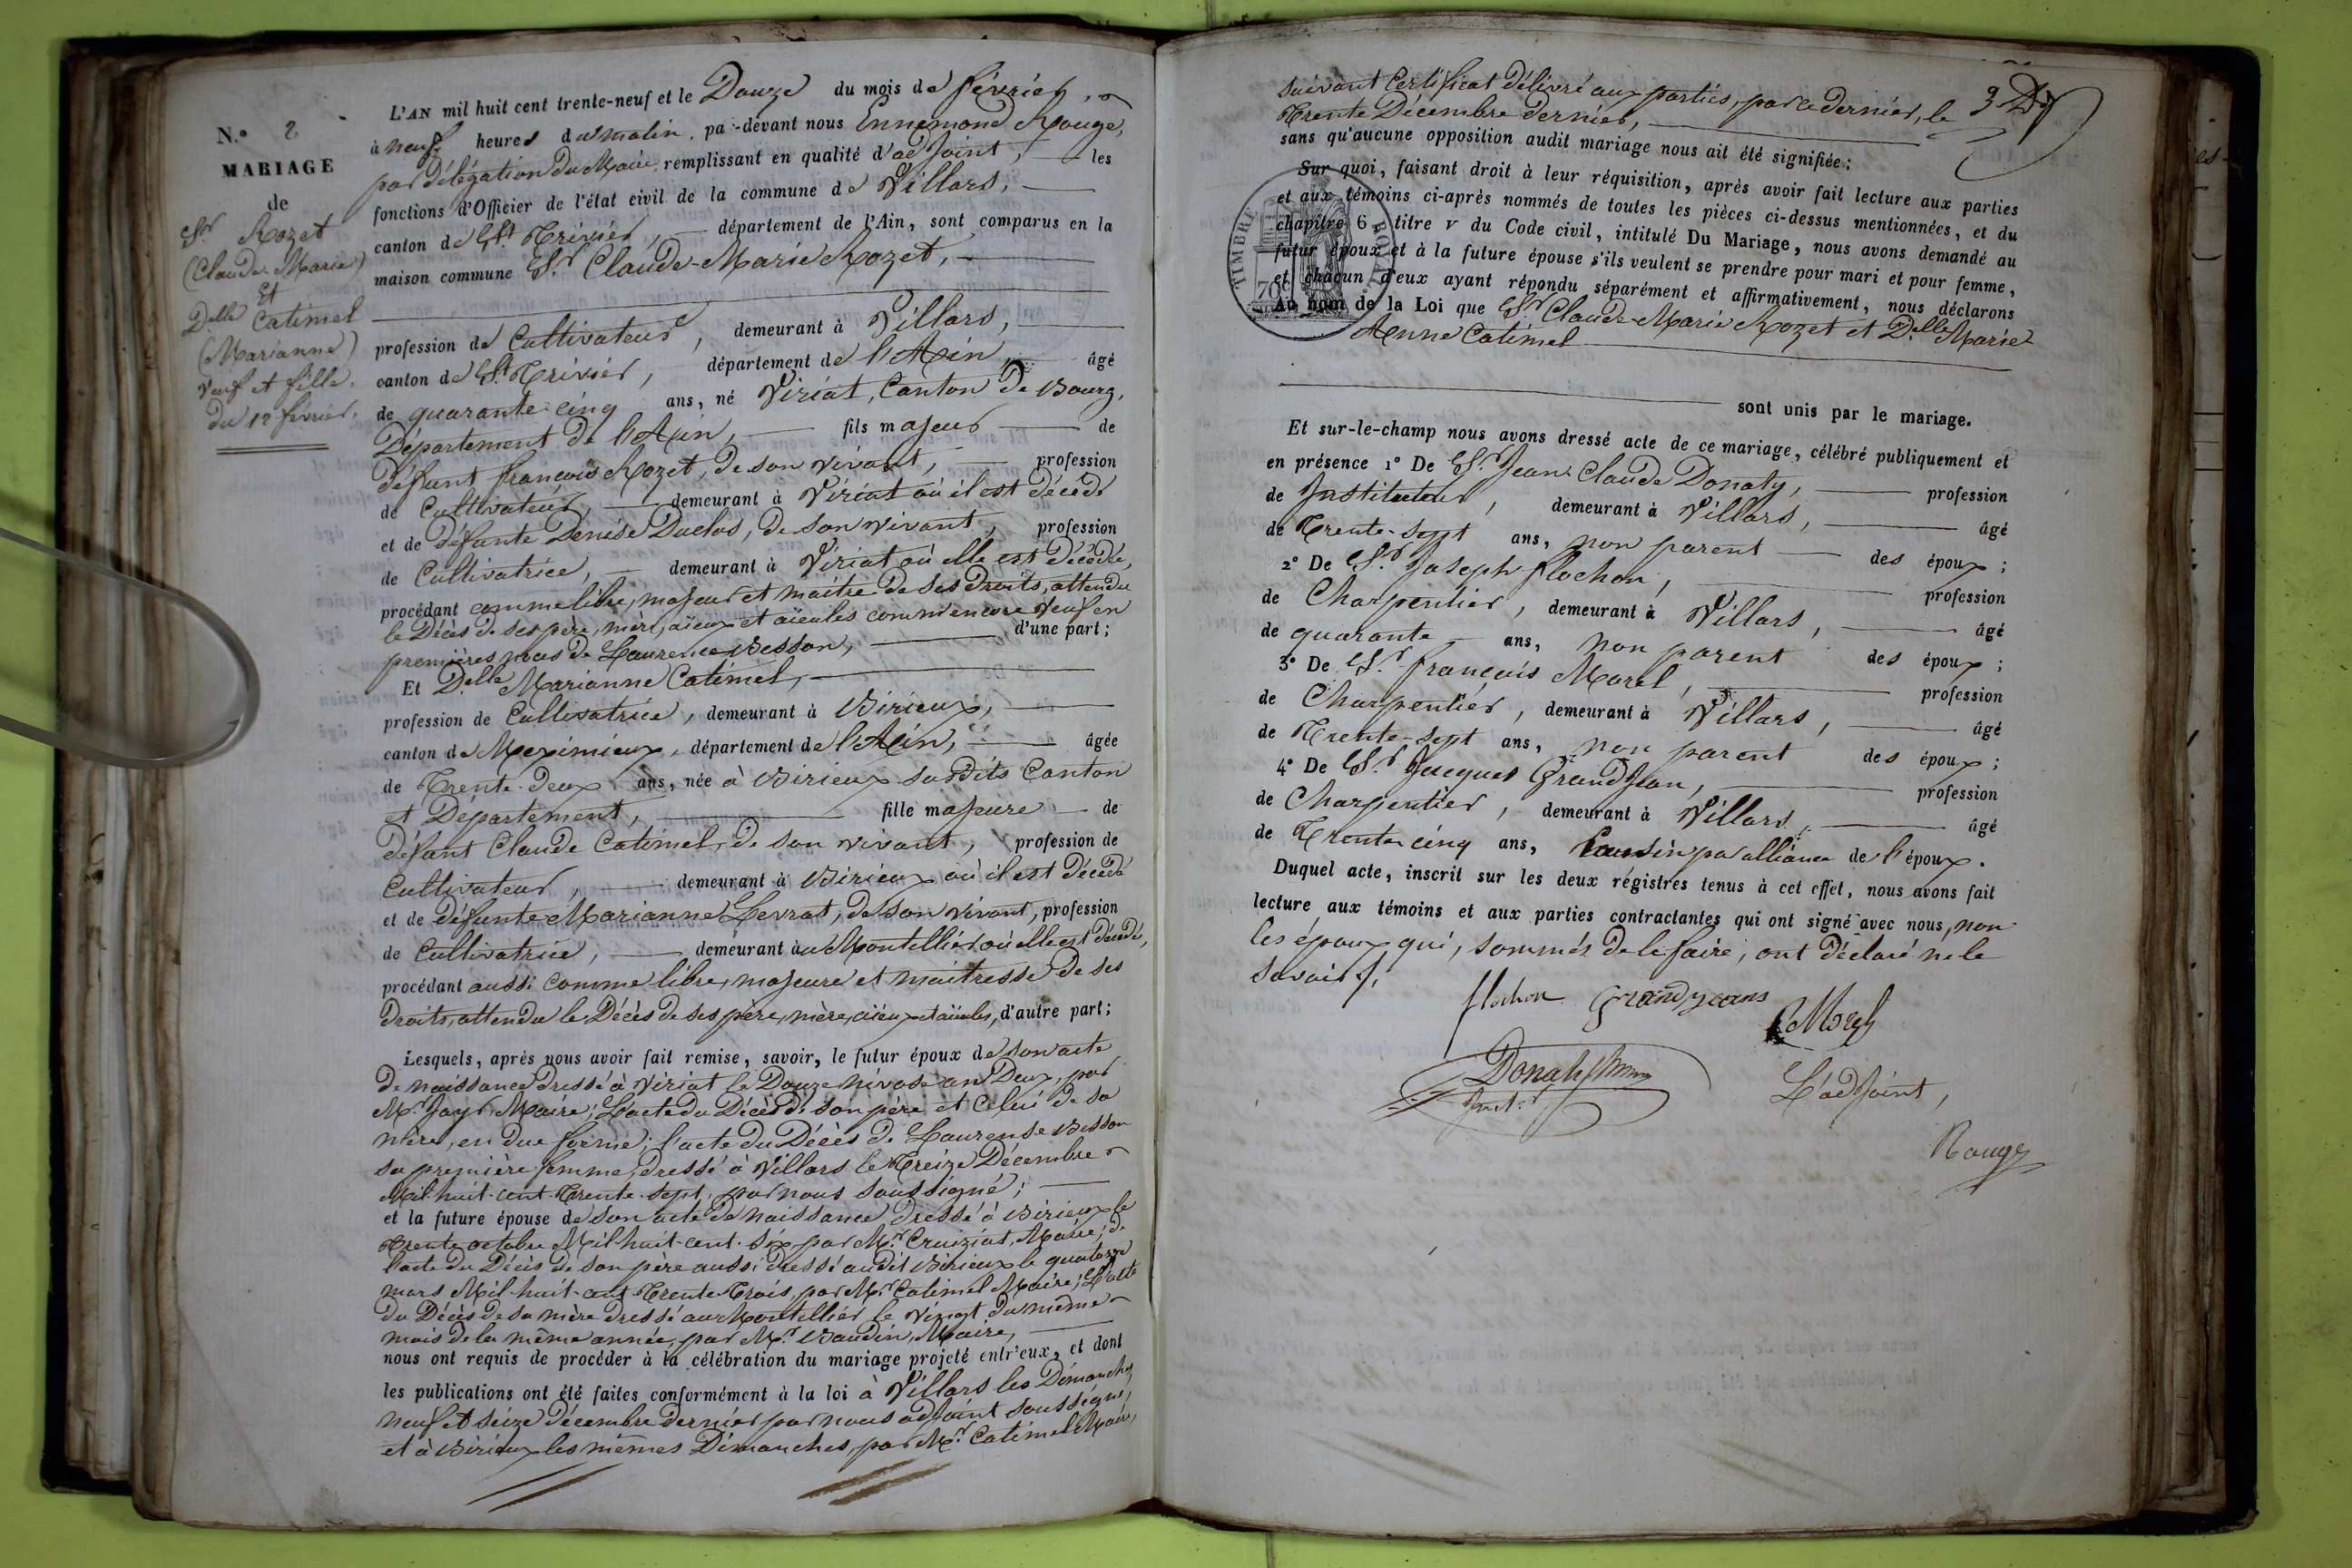 N.° 2
MARIAGE
de
Sr. Rozet
(Claude-Marie)
Et
Delle Catimel
(Marianne)
veuf et fille.
du 12 février.
L'AN mil huit cent trente-neuf et le Douze du mois de février,
à neuf heures du matin, pa-devant nous Ennemond Rouge,
par délégation du Maire, remplissant en qualité d'adjoint, les
fonctions d'Officier de l'état civil de la commune de Villars,
canton de St Trivier, département de l'Ain, sont comparus en la
maison commune Sr. Claude-Marie Rozet,
profession de Cultivateur, demeurant à Villars,
canton de St. Trivier, département de l'Ain, âgé
de quarante cinq ans, né Viriat, Canton de Bourg,
Département de l'Ain, fils majeur de
défunt françois Rozet, de son vivant, profession
de Cultivateur, demeurant à Viriat où il est décédé
et de défunte Denise Duclos, de son vivant, profession
de Cultivatrice, demeurant à Viriat où elle est décédée,
procédant comme libre, majeur et maitre de ses droits, attendu
le Décès de ses père, mère, aïeux et aïeules comm'encore veuf en
premières noces de Laurence Besson, d'une part;
Et Delle Marianne Catimel,
profession de Cultivatrice, demeurant à Birieux,
canton de Meximieux, département de l'Ain, âgée
de Trente-deux ans, née à Birieux susdits Canton
et Département, fille majeure de
défunt Claude Catimel, de son vivant, profession de
Cultivateur, demeurant à Birieux où il est décédé
et de défunte Marianne Levrat, de son vivant, profession
de Cultivatrice, demeurant au Montellier où elle est décédée,
procédant aussi comme libre, majeure et maitresse de ses
droits, attendu le Décès de ses père, mère, aïeux et aïeules, d'autre part;
Lesquels, après nous avoir fait remise, savoir, le futur époux de son acte
de naissance dressé à Viriat le Douze nivose an Deux, par
Mr. Jayr, Maire; L'acte du Décès de son père et celui de sa
mère, en due forme; l'acte du Décès de Laurense Besson
sa première femme, dressé à Villars le Treize Décembre
Mil-huit-cent-Trente-sept, par nous soussigné;
et la future épouse de son acte de naissance dressé à Birieux le
Trente octobre Mil-huit-cent-six par Mr. Cruiziat, Maire; de
l'acte du Décès de son père aussi dressé audit Birieux le quatorze
mars Mil-huit-cent Trente-Trois, par Mr. Catimel Maire; L'acte
du Décès de sa mère dressé au Montellier le vingt du même
mois de la même année, par Mr. Baudin, Maire,
nous ont requis de procéder à la célébration du mariage projeté entr'eux, et dont
les publications ont été faites conformément à la loi à Villars les Dimanches
neuf et seize Décembre dernier par nous adjoint soussigné,
et à Birieux les mêmes Dimanches, par Mr. Catimel Maire,
suivant Certificat délivré aux parties, par ce dernier, le
Trente Décembre dernier,
sans qu'aucune opposition audit mariage nous ait été signifiée;
Sur quoi, faisant droit à leur réquisition, après avoir fait lecture aux parties
et aux témoins ci-après nommés de toutes les pièces ci-dessus mentionnées, et du
chapitre 6 titre v du Code civil, intitulé Du Mariage, nous avons demandé au
futur époux et à la future épouse s'ils veulent se prendre pour mari et pour femme,
et chacun d'eux ayant répondu séparément et affirmativement, nous déclarons
Au nom de la Loi que Sr. Claude-Marie Rozet et Delle Marie
Anne Catimel
sont unis par le mariage.
TIMBRE ROYAL
70c
Et sur-le-champ nous avons dressé acte de ce mariage, célébré publiquement et
en présence 1° De Sr. Jean-Claude Donaty, profession
de Instituteur, demeurant à Villars, âgé
de Trente-sept ans, non parent des époux;
2° De Sr. Joseph flochon, profession
de Charpentier, demeurant à Villars, âgé
de quarante ans, non parent des époux;
3° De Sr. françois Morel, profession
de Charpentier, demeurant à Villars, âgé
de Trente-sept ans, non parent des époux;
4° De Sr. Jacques Grandjean, profession
de Charpentier, demeurant à Villars, âgé
de Trente cinq ans, Cousin par alliance de l'époux.
Duquel acte, inscrit sur les deux régistres tenus à cet effet, nous avons fait
lecture aux témoins et aux parties contractantes qui ont signé avec nous, non
les époux qui, sommés de le faire, ont déclaré ne le
savoir.
flochon Grandjeans
Morel
Donaty
Inst.r
L'adjoint,
Rouge